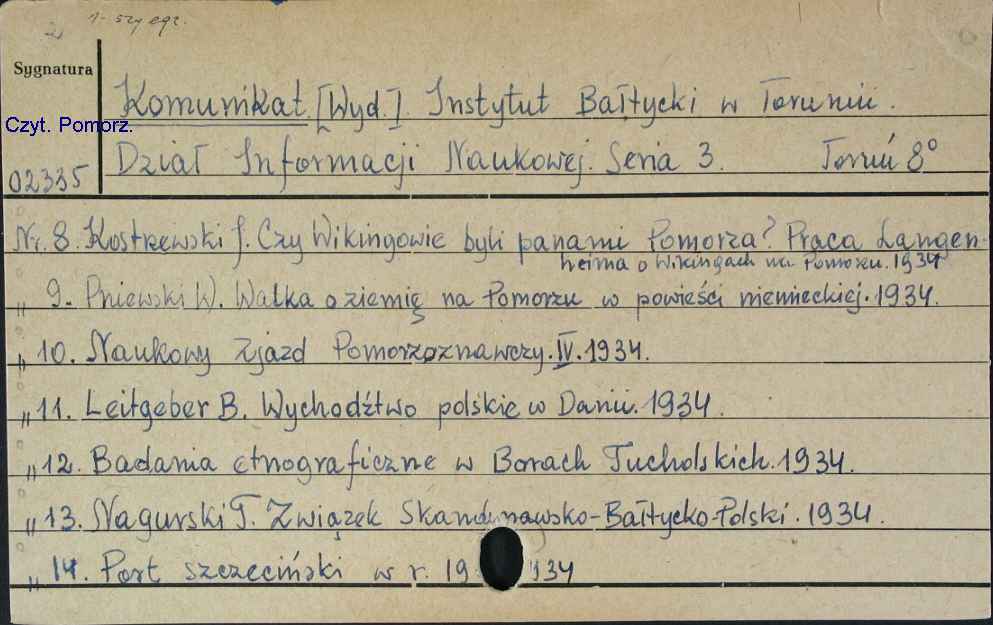 1-szy egz.
Sygnatura
Komunikat [Wyd.]. Instytut Bałtycki w Toruniu.
Czyt. Pomorz.
Dział Informacji Naukowej. Seria 3. Toruń 8°
02335
Nr. 8. Kostrzewski J. Czy Wikingowie byli panami Pomorza? Praca Langen-
heima o Wikingach na Pomorzu. 1934
„ 9. Pniewski W. Walka o ziemię na Pomorzu w powieści niemieckiej. 1934.
„ 10. Naukowy Zjazd Pomorzoznawczy. IV. 1934.
„ 11. Leitgeber B. Wychodźtwo polskie w Danii. 1934.
„ 12. Badania etnograficzne w Borach Tucholskich. 1934.
„ 13. Nagurski T. Związek Skandynawsko-Bałtycko-Polski. 1934.
„ 14. Port szczeciński w r. 19 934